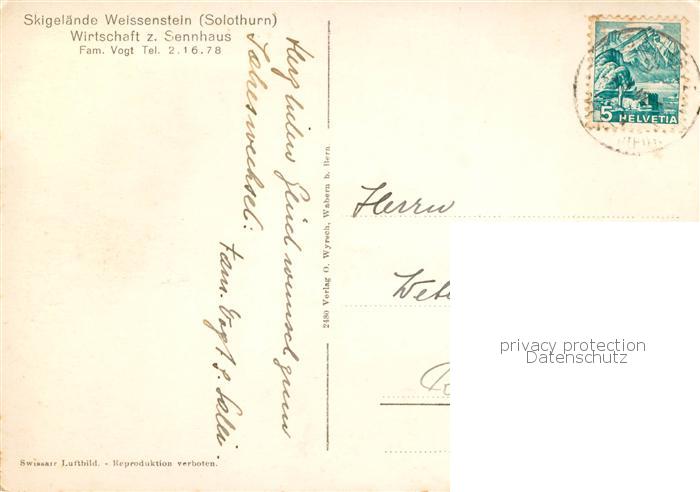 Skigelände Weissenstein (Solothurn)
Wirtschaft z. Sennhaus
Fam. Vogt Tel. 2.16.78
Herzlichen Glückwunsch zum
Jahreswechsel.
Fam. Vogt s. Selli.
2480 Verlag O. Wyrsch, Wabern b. Bern.
5 HELVETIA
Herrn
privacy protection
Datenschutz
Swissair Luftbild. - Reproduktion verboten.